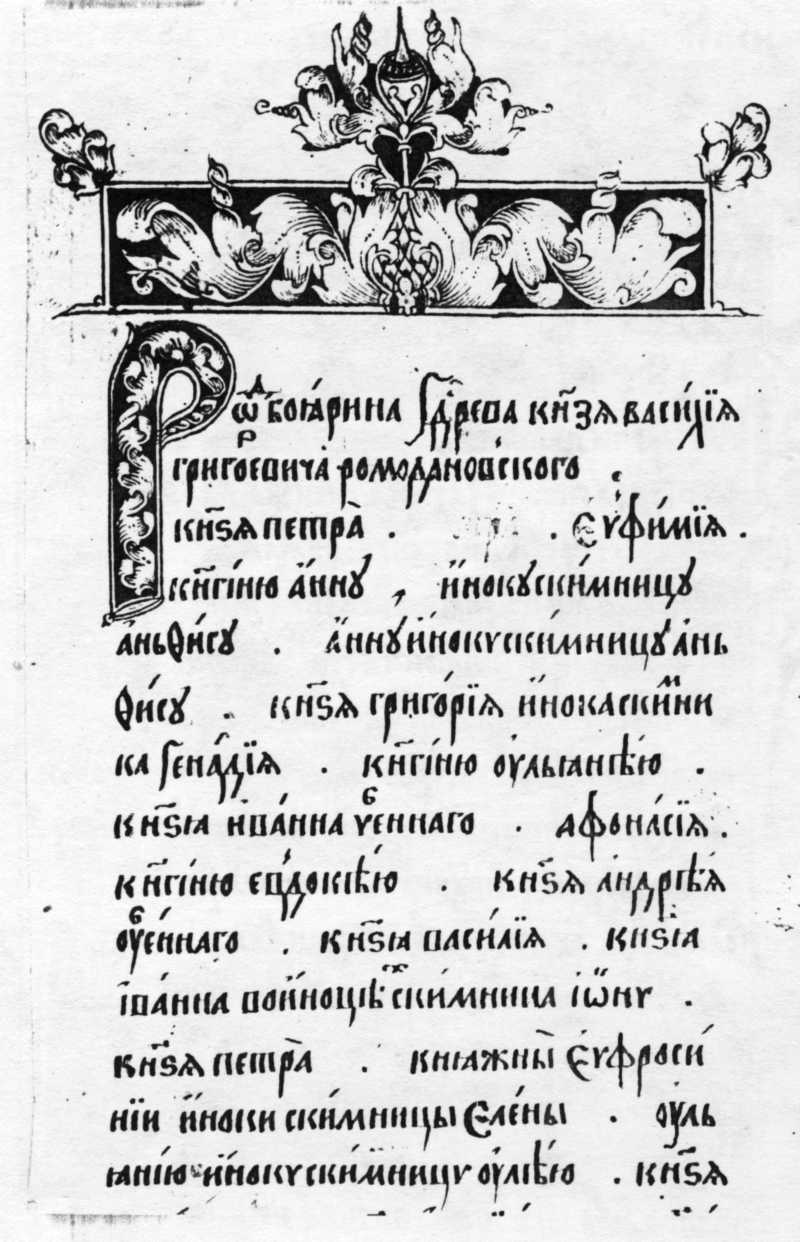 Рѡⷣ боꙗрина Гдⷭ҇рева кн҃зѧ василїѧ
григоⷬ҇евича ромодановского
кн҃ѕѧ петра . . еѵфимїѧ .
кн҃гіню анну , инокускимницу
аньѳису . анну инокускимницу ань
ѳису . кн҃ѕѧ григорїѧ инокаскимни
ка генадїѧ . кн҃гіню оульꙗнѣю .
кн҃ѕꙗ иванна уⷠ҇еннаго . афонасїѧ .
кн҃гіню евдокѣю . кн҃ѕѧ андрѣѧ
оуⷠ҇еннаго . кн҃ѕꙗ василїѧ . кн҃ѕꙗ
їванна скимника іѡну .
кн҃ѕѧ петра . кнꙗжны еѵфроси
нїи иноки скимницы елены . оуль
ꙗнію инокускимницу оулѣю . кн҃ѕѧ